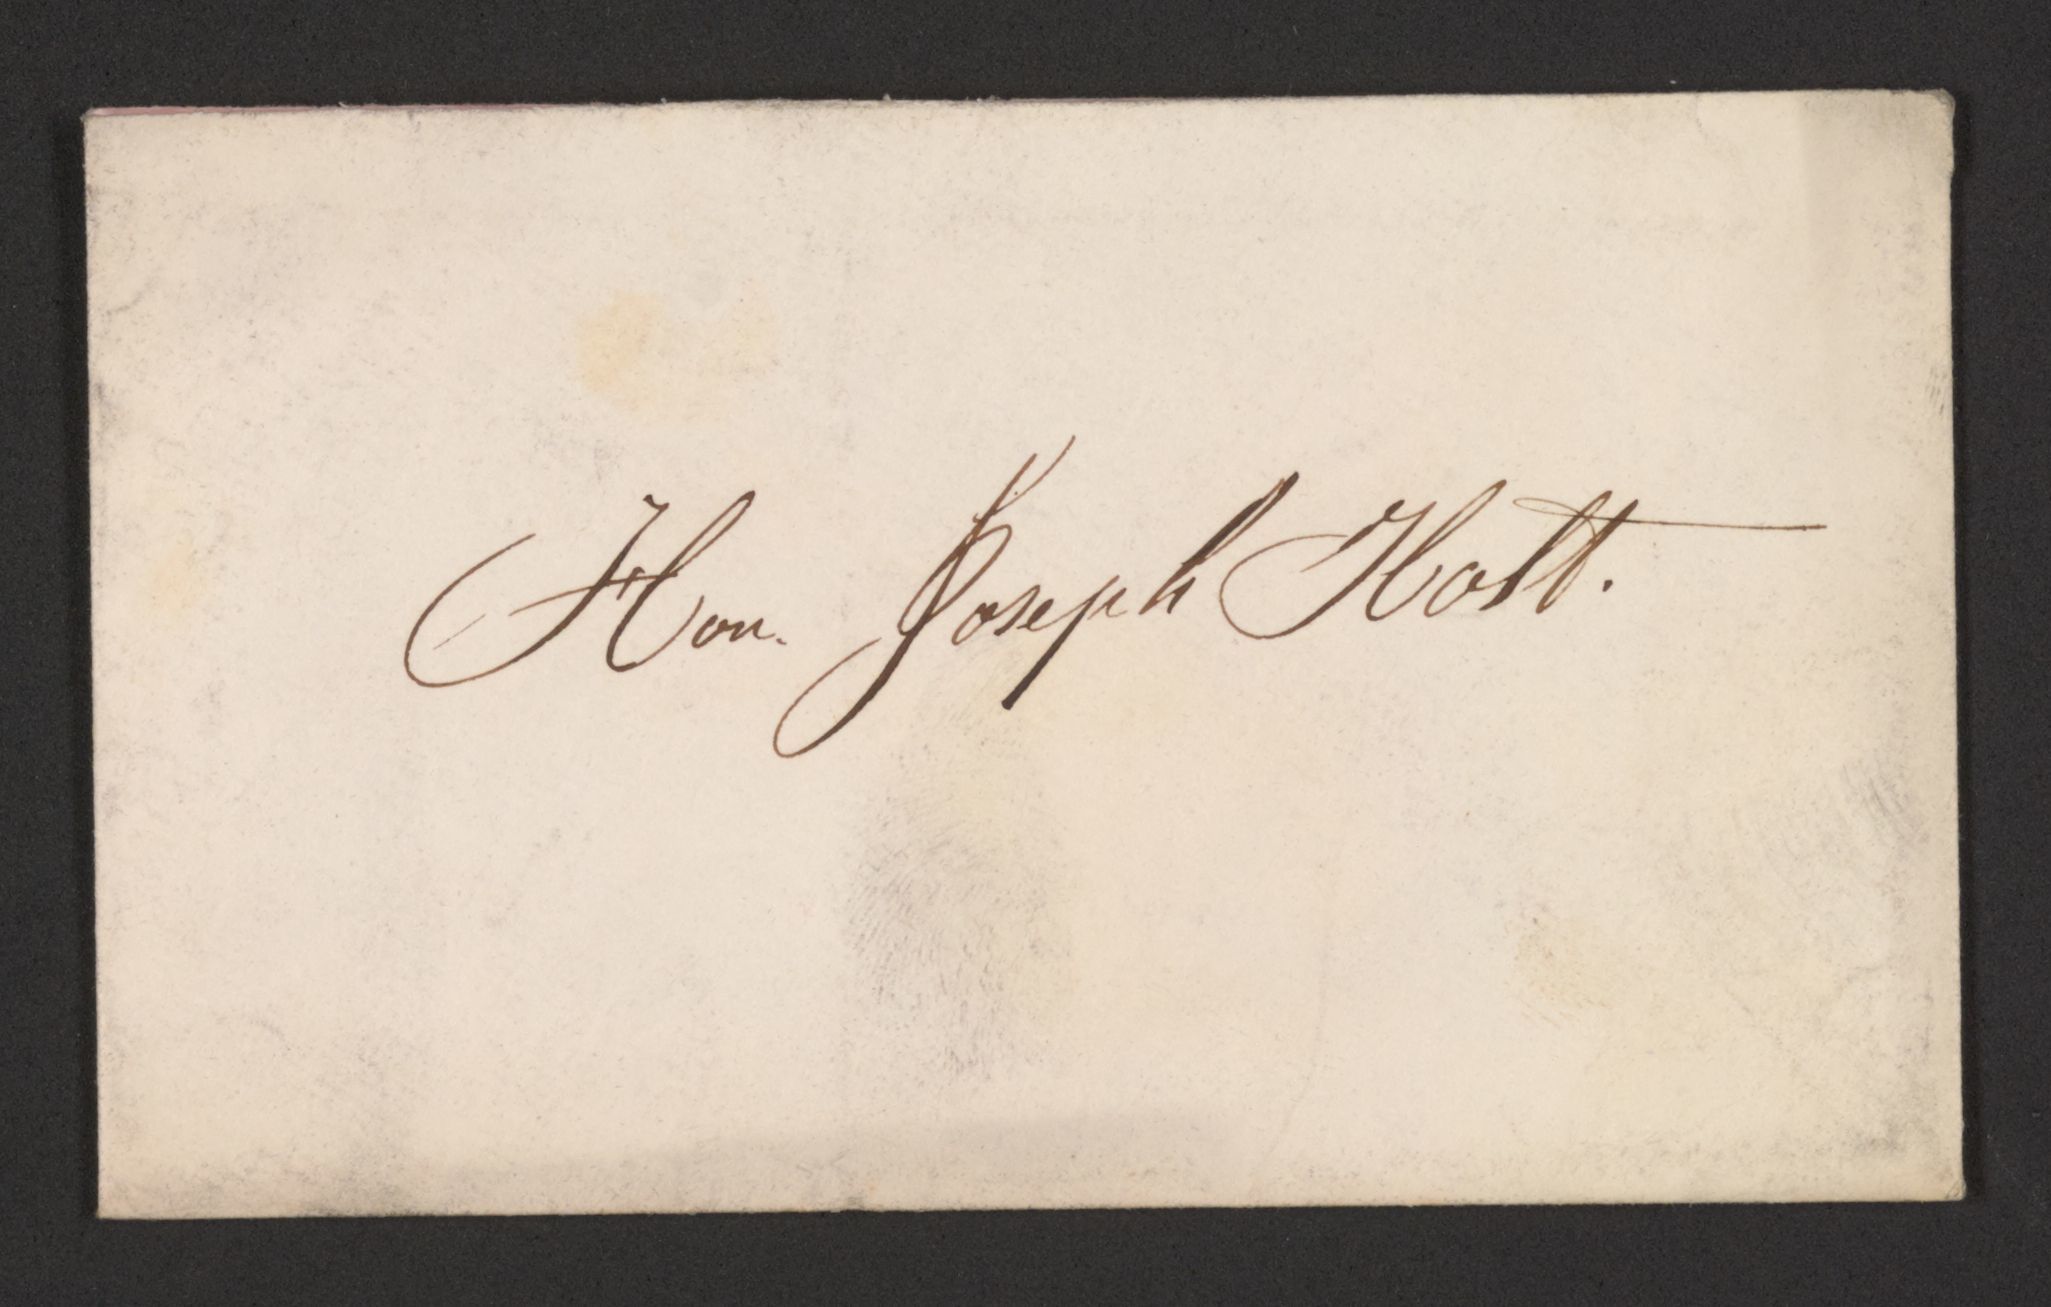 Hon. Joseph Holt.